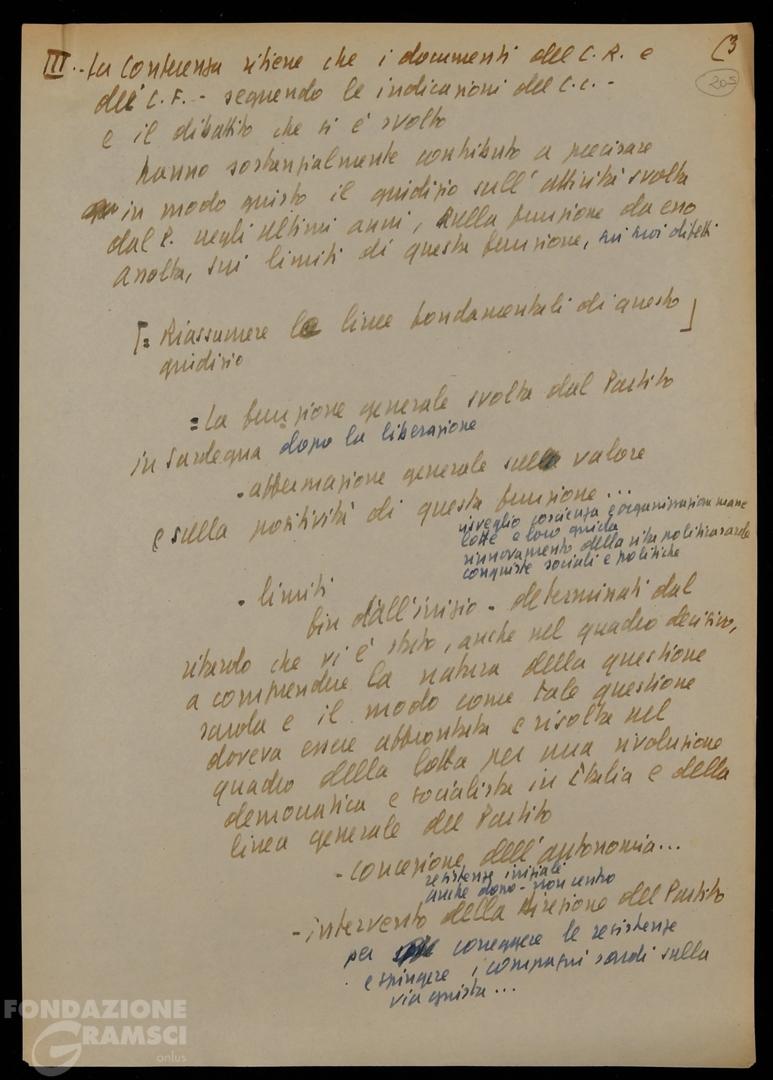 (3
205
III.- La Conferenza ritiene che i documenti del C.R. e
del C.F. - seguendo le indicazioni del C.C. -
e il dibattito che si è svolto
hanno sostanzialmente contribuito a precisare
in modo giusto il giudizio sull'attività svolta
dal P. negli ultimi anni, sulla funzione da esso
assolta, sui limiti di questa funzione, sui suoi difetti
[= Riassumere le linee fondamentali di questo ]
giudizio
= La funzione generale svolta dal Partito
in Sardegna dopo la liberazione
- affermazione generale sul valore
e sulla positività di questa funzione...
risveglio coscienza e organizzazione masse
lotte e loro guida
rinnovamento della vita politica sarda
conquiste sociali e politiche
- limiti
fin dall'inizio - determinati dal
ritardo che vi è stato, anche nel quadro decisivo,
a comprendere la natura della questione
sarda e il modo come tale questione
doveva essere affrontata e risolta nel
quadro della lotta per una rivoluzione
democratica e socialista in Italia e della
linea generale del Partito
- concezione dell'autonomia...
resistenze iniziali
anche dopo - non centro
- intervento della Direzione del Partito
per correggere le resistenze
e spingere i compagni sardi sulla
via giusta...
FONDAZIONE
GRAMSCI
onlus